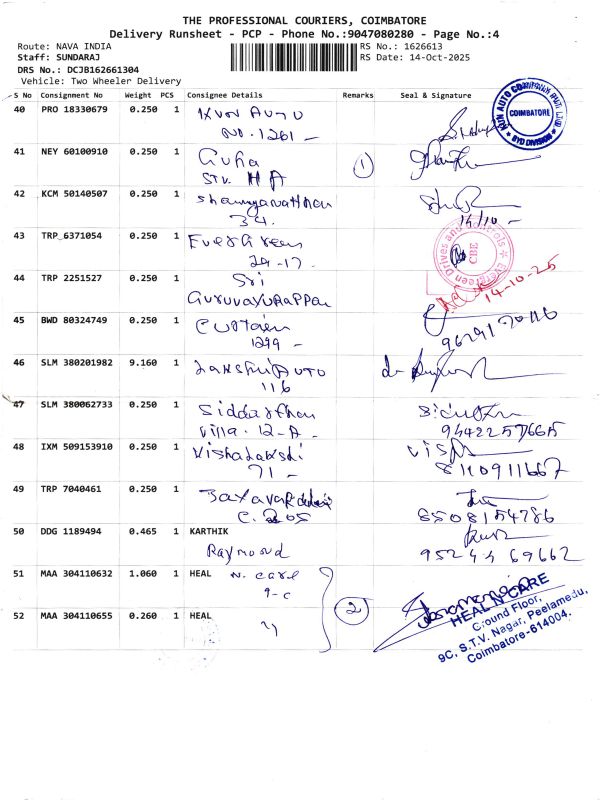 THE PROFESSIONAL COURIERS, COIMBATORE
Delivery Runsheet - PCP - Phone No.:9047080280 - Page No.:4
Route: NAVA INDIA
RS No.: 1626613
Staff: SUNDARAJ
RS Date: 14-Oct-2025
DRS No.: DCJB162661304
Vehicle: Two Wheeler Delivery
S No Consignment No Weight PCS Consignee Details Remarks Seal & Signature
40 PRO 18330679 0.250 1 KUN AUTO
NO. 1261 -
KUN AUTO COMPANY PVT LTD
COIMBATORE
BYD DIVISION
41 NEY 60100910 0.250 1 Guha
STV. H A
1
42 KCM 50140507 0.250 1 Shanmuganathan
34.
14/10 -
43 TRP 6371054 0.250 1 Evergreen
29-17.
Evergreen Drives and Controls
CBE
44 TRP 2251527 0.250 1 Sri
GURUVAYURAPPAN
14-10-25
45 BWD 80324749 0.250 1 Custain
1299 -
46 SLM 380201982 9.160 1 Lakshmi AUTO
116
47 SLM 380062733 0.250 1 Siddarthan
Villa. 12-A -
9442257665
48 IXM 509153910 0.250 1 Vishalakshi
71 -
8110911667
49 TRP 7040461 0.250 1
C. 205
8508154786
50 DDG 1189494 0.465 1 KARTHIK
Raymond
95244 69662
51 MAA 304110632 1.060 1 HEAL N. care
9-C
52 MAA 304110655 0.260 1 HEAL "
2
HEAL N CARE
Ground Floor,
9C, S.T.V. Nagar, Peelamedu,
Coimbatore-614004.